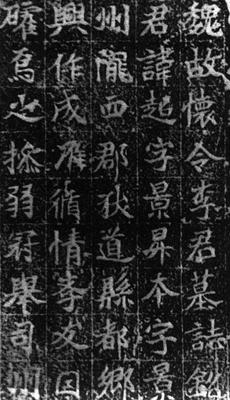 魏故懷令李君墓誌銘
君諱超字景昇本字景
州隴西郡狄道縣都鄉
興作成循情孝友因
確焉之操弱冠舉司州